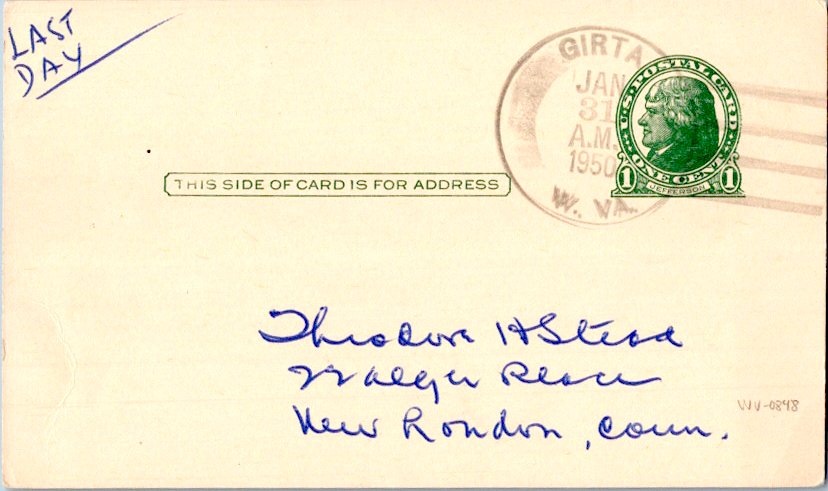 LAST
DAY
GIRTA
JAN
31
A.M.
1950
W. VA.
U.S. POSTAL CARD
ONE CENT
1 JEFFERSON 1
THIS SIDE OF CARD IS FOR ADDRESS
Theodore H Stead
Place
New London, Conn.
WV-0848